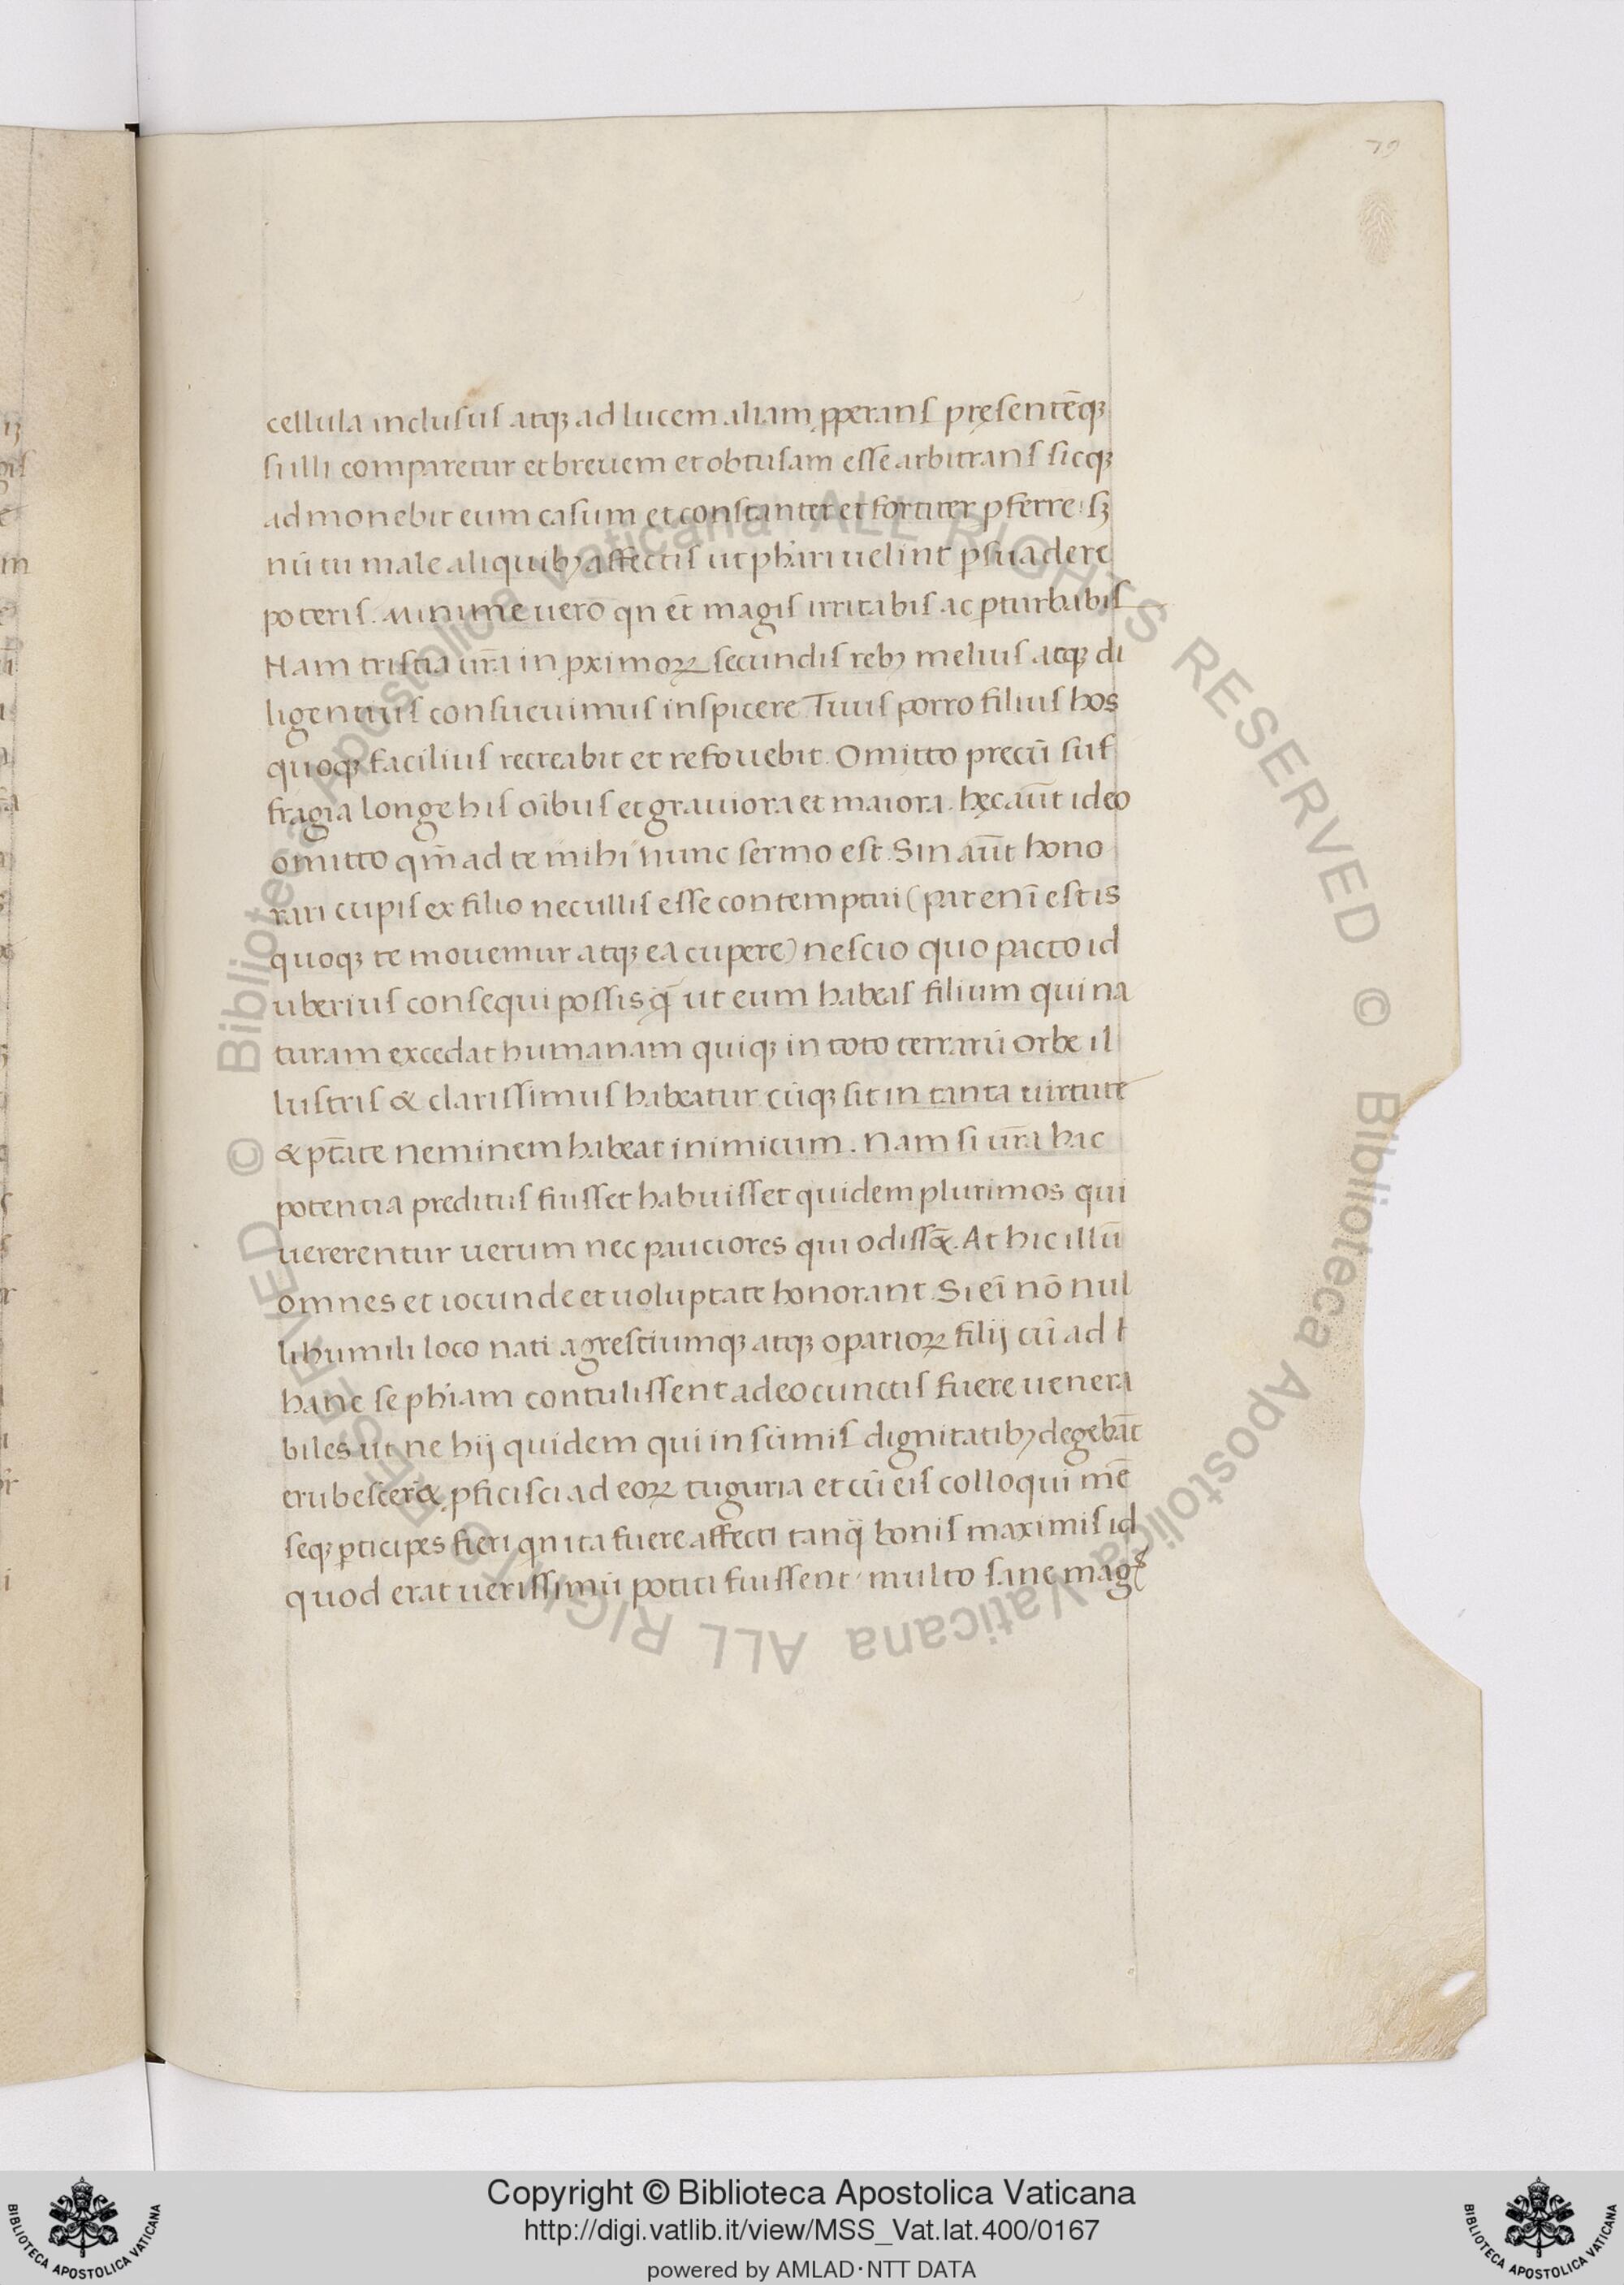 79
cellula inclusus atq; ad lucem aliam ꝓperans pręsentēq;
si illi comparetur et breuem et obtusam esse arbitrans sicq;
admonebit eum casum et constanter et fortiter pferre: sꝫ
nū tu male aliquibꝫ affectis ut phari uelint psuadere
poteris. Minime uero qn et̄ magis irritabis ac pturbabis
Nam tristia ur̄a in ꝓximoꝝ secundis rebꝫ melius atq; di
ligentius consueuimus inspicere. Tuus porro filius hos
quoq; facilius recreabit et refouebit. Omitto precū suf
fragia longe his oībus et grauiora et maiora. hęc aūt ideo
omitto qm̄ ad te mihi nunc sermo est. Sin aūt hono
rari cupis ex filio nec ullis esse contemptui (par enī est is
quoq; te mouemur atq; ea cupere) nescio quo pacto id
uberius consequi possis q̄ ut eum habeas filium qui na
turam excedat humanam quiq; in toto terrarū orbe il
lustris & clarissimus habeatur. cūq; sit in tanta uirtute
& ptāte neminem habeat inimicum. Nam si ur̄a hac
potentia preditus fuisset habuisset quidem plurimos qui
uererentur uerum nec pauciores qui odiss&̄. At hic illū
omnes et iocunde et uoluptate honorant. Si eī nō nul
li humili loco nati agrestiumq; atq; oparioꝝ filij cū ad t
hanc se phiam contulissent adeo cunctis fuere uenera
biles ut ne hij quidem qui in sūmis dignitatibꝫ degebāt
erubescer&̄ ꝓficisci ad eoꝝ tuguria et cū eis colloqui mē
seq; pticipes fieri qn ita fuere affecti tanq̄ bonis maximis id
quod erat uerissimū potiti fuissent: multo sane mag⁹
© Biblioteca Apostolica Vaticana ALL RIGHTS RESERVED © Biblioteca Apostolica Vaticana ALL RIGHTS RESERVED
Copyright © Biblioteca Apostolica Vaticana
http://digi.vatlib.it/view/MSS_Vat.lat.400/0167
powered by AMLAD·NTT DATA
BIBLIOTECA APOSTOLICA VATICANA
BIBLIOTECA APOSTOLICA VATICANA